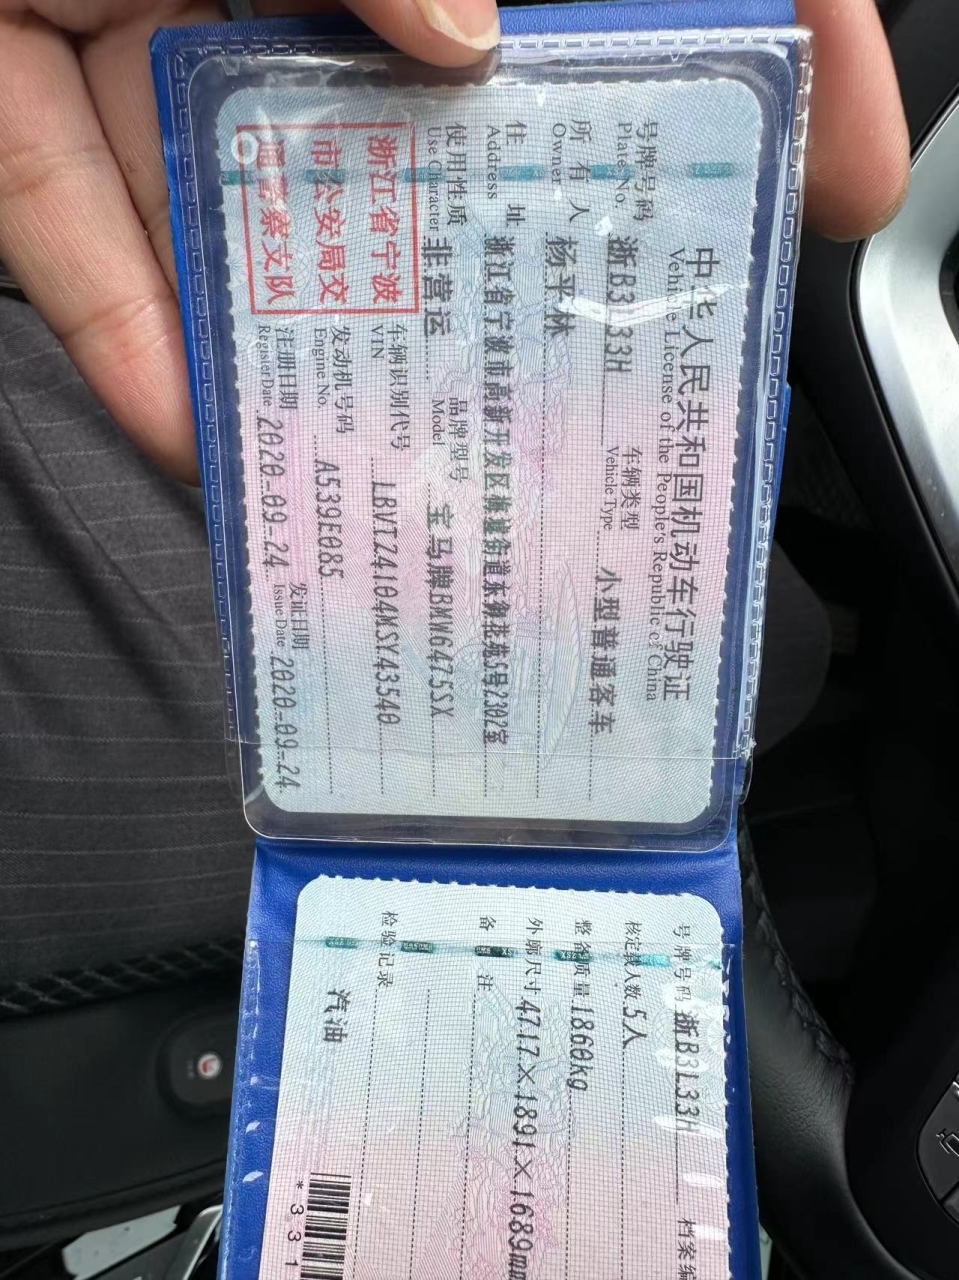 中华人民共和国机动车行驶证
Vehicle License of the People's Republic of China
号牌号码 浙B3L33H 车辆类型 小型普通客车
Plate No. Vehicle Type
所有人 杨平林
Owner
住址 浙江省宁波市高新开发区梅墟街道东御花苑5号2302室
Address
使用性质 非营运 品牌型号 宝马牌BMW6475SX
Use Character Model
浙江省宁波
市公安局交
通警察支队
车辆识别代号
VIN
发动机号码 A539E085
Engine No.
注册日期 2020-09-24 发证日期 2020-09-24
Register Date Issue Date
号牌号码 浙B3L33H 档案编
核定载人数 5人
整备质量 1860kg
外廓尺寸 4717×1891×1689mm
备注
检验记录
汽油
*331